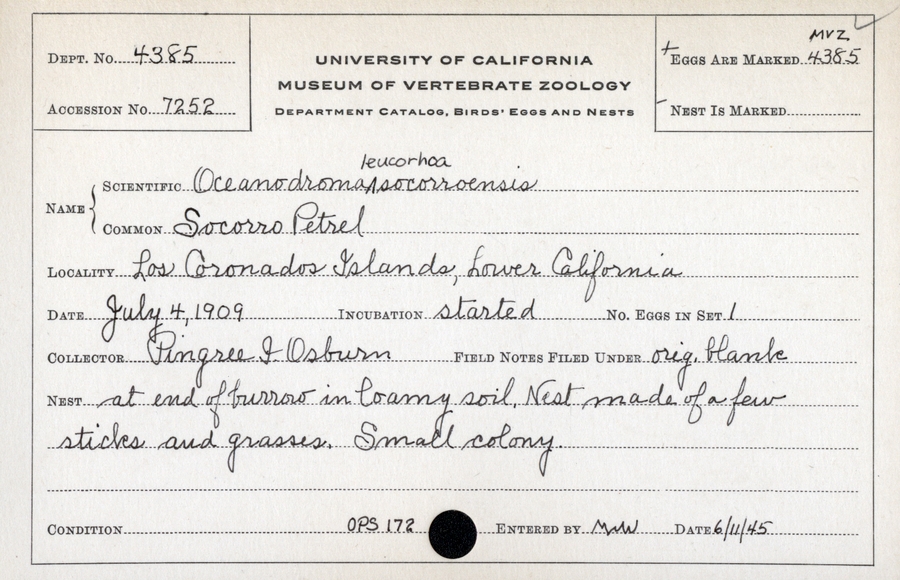 MVZ
DEPT. No. 4385
UNIVERSITY OF CALIFORNIA
+ EGGS ARE MARKED 4385
MUSEUM OF VERTEBRATE ZOOLOGY
ACCESSION No. 7252
DEPARTMENT CATALOG, BIRDS' EGGS AND NESTS
- NEST IS MARKED
leucorhoa
NAME { SCIENTIFIC Oceanodroma ∧ socorroensis
COMMON Socorro Petrel
LOCALITY Los Coronados Islands, Lower California
DATE July 4, 1909 INCUBATION started No. EGGS IN SET 1
COLLECTOR Pingree I Osburn FIELD NOTES FILED UNDER orig. blank
NEST at end of burrow in loamy soil. Nest made of a few
sticks and grasses. Small colony.
CONDITION OPS 172 ENTERED BY MW DATE 6/11/45